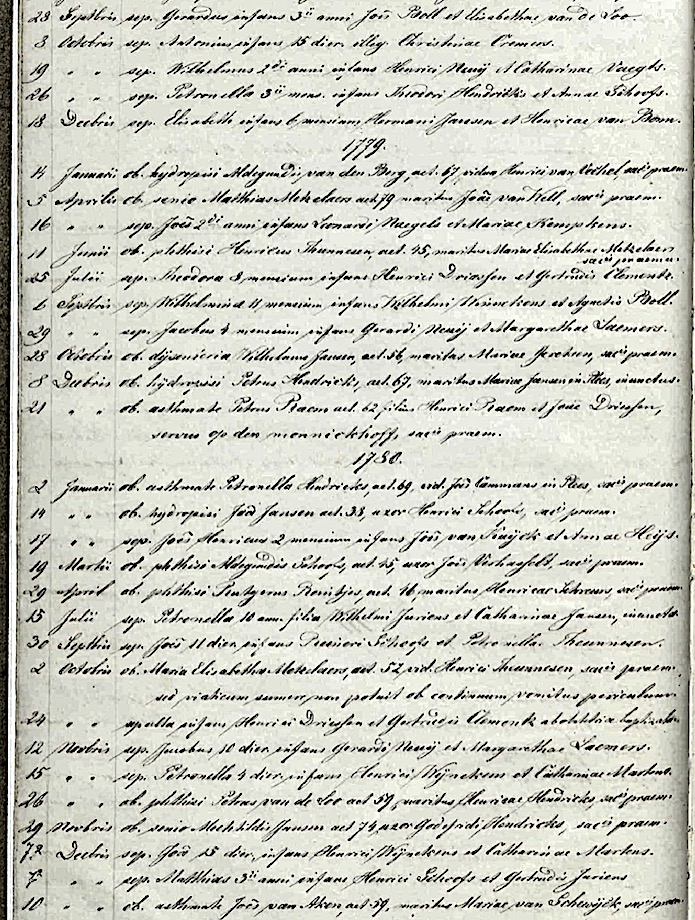 23 Septbris sep. Gerardus infans 3ii anni Joïs Boll et Elisabethae van de Loo.
3 Octobris sep. Antonius infans 15 dier. illeg. Christinae Cremers.
19 " " sep. Wilhelmus 2di anni infans Henrici Neuij et Catharinae Vaegts.
26 " " sep. Petronella 3ii mens. infans Theodori Hendricks et Annae Schoofs.
18 Decbris sep. Elisabeth infans 6 mensium Hermani Jansen et Henricae van Bom.
1779.
14 Januarii ob. hydropisi Aldegundis van den Berg, aet. 67, vidua Henrici van, sacïs praem.
5 Aprilis ob. senio Mathias Metzelaers aet. 79 maritus Joäe van Kell, sacïs praem.
16 " " sep. Joïs 2di anni infans Leonardi Naegels et Mariae Kempkens.
11 Junii ob. phthisi Henricus Theunnesen, aet. 45, maritus Mariae Elisabethae Metzelaers
sacïs praem.
25 Julii sep. Theodora 8 mensium infans Henrici Driessen et Gertrudis Clementz.
6 Septbris sep. Wilhelmina 11 mensium infans Wilhelmi et Agnetis Boll.
29 " " sep. Jacobus 4 mensium infans Gerardi Neuij et Margarethae Laemers.
28 Octobris ob. dijsenteria Wilhelmus Jansen, aet. 56, maritus Mariae, sacïs praem.
8 Decbris ob. hydropisi Petrus Hendricks, aet. 67, maritus Mariae Jansen in Plees, inunctus.
21 " " ob. asthmate Petrus Raem aet. 62, filius Henrici Raem et Joäe Driessen,
servus op den monnickhoff, sacïs praem.
1780.
2 Januarii ob. asthmate Petronella Hendricks, aet. 69, vid. Joïs Cammans in Plees, sacïs praem.
14 " " ob. hydropisi Joä Jansen aet. 38, uxor Henrici Schoofs, sacïs praem.
17 " " sep. Joïs Henricus 2 mensium infans Joïs van et Annae Heijs.
19 Martii ob. phthisi Aldegundis Schoofs, aet. 45, uxor Joïs Verhasselt, sacïs praem.
29 April ob. phthisi Reintjes, aet. 46, maritus Henricae Schreurs, sacïs praem.
15 Julii sep. Petronella 10 ann. filia Wilhelmi Juriens et Catharinae Jansen, inuncta.
30 Septbris sep. Joïs 11 dier. infans Reineri Schoofs et Petronilla Theunnesen.
2 Octobris ob. Maria Elisabetha Metzelaers, aet. 52, vid. Henrici Theunnesen, sacïs praem.
sed viaticum sumere non potuit ob continuum vomitus periculum.
24 " " infans Henrici Driessen et Gertrudis Clementz ab obstetrice baptizata.
12 Novbris sep. Jacobus 10 dier. infans Gerardi Neuij et Margarethae Laemers.
15 " " sep. Petronella 4 dier. infans Henrici Wijnekens et Catharinae Martens.
26 " " ob. phthisi Petrus van de Loo aet. 59, maritus Henricae Hendricks, sacïs praem.
29 Novbris ob. senio Mechtildis Jansen aet. 74, uxor Godefridi Hendricks, sacïs praem.
7a Decbris sep. Joïs 15 dier. infans Henrici Wijnekens et Catharinae Martens.
7a " " sep. Matthias 3ii anni infans Henrici Schoofs et Gertrudis Juriens
10 " " ob. asthmate Joïs van Aken, aet. 59, maritus Mariae van, sacïs praem.